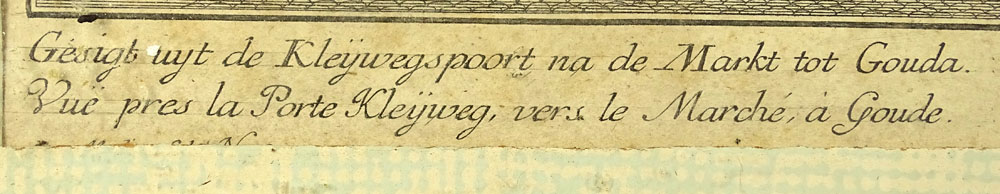 Gesigt uyt de Kleÿwegspoort na de Markt tot Gouda.
Vuë pres la Porte Kleÿweg, vers le Marché, à Goude.